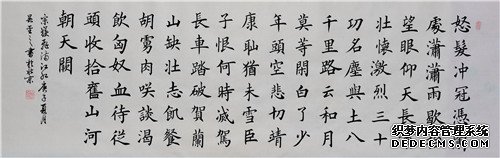 怒髮冲冠憑
處瀟瀟雨歇
望眼仰天長
壯懷激烈三十
功名塵與土八
千里路云和月
莫等閒白了少
年頭空悲切靖
康恥猶未雪臣
子恨何時滅駕
長車踏破賀蘭
山缺壯志飢餐
胡虜肉咲談渴
飲匈奴血待從
頭收拾舊山河
朝天闕
宋嶽飛滿江紅庚子夏月
书於北京
织梦内容管理系统
DEDECMS.COM